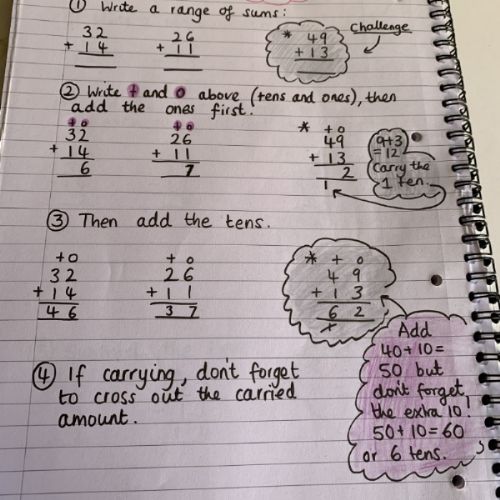 ① Write a range of sums:
32
+ 14
26
+ 11
* 49
+ 13
Challenge
② Write t and o above (tens and ones), then
add the ones first.
to
32
+ 14
6
to
26
+ 11
7
* to
49
+ 13
2
1
9+3
=12
Carry the
1 ten.
③ Then add the tens.
to
32
+ 14
46
t o
26
+ 11
37
* t o
4 9
+ 1 3
6 2
1
Add
40+10=
50 but
don't forget
the extra 10!
50+10=60
or 6 tens.
④ If carrying, don't forget
to cross out the carried
amount.